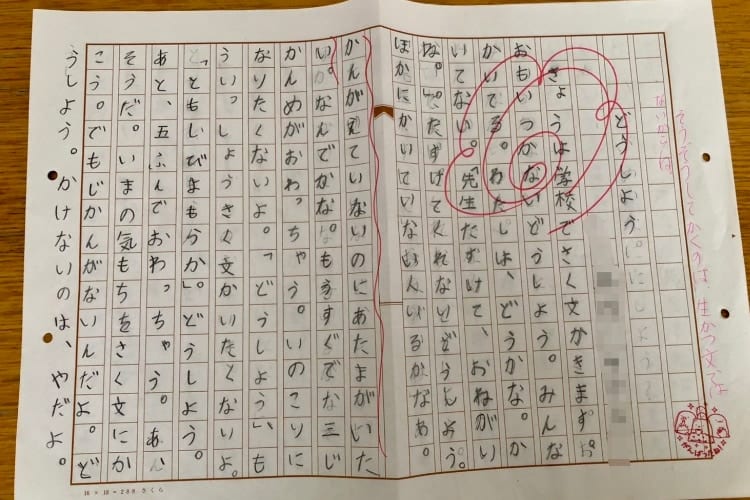 そうぞうしてかくのは 生かつ文
どうしよう
きょうは学校でさく文かきます。
おもいつかないどうしよう。みんな
かいてる。わたしは、どうかな。か
いてない。「先生たすけて、おねがい
ね。」。たすけてくれないどうしよう。
ほかにかいていないもんいるかなあ。
かんがえていないのにあたまがいた
い。なんでかな。もうすぐで三じ
かんめがおわっちゃう。いのこりに
なりたくないよ。「どうしよう」も
ういっしょうさく文かいたくないよ。
「ともしびまもらか」。どうしよう。
あと、五ふんでおわっちゃう。あ、
そうだ。いまの気もちをさく文にか
こう。でもじかんがないんだよ。ど
うしよう。かけないのは、やだよ。
16×18=288 さくら